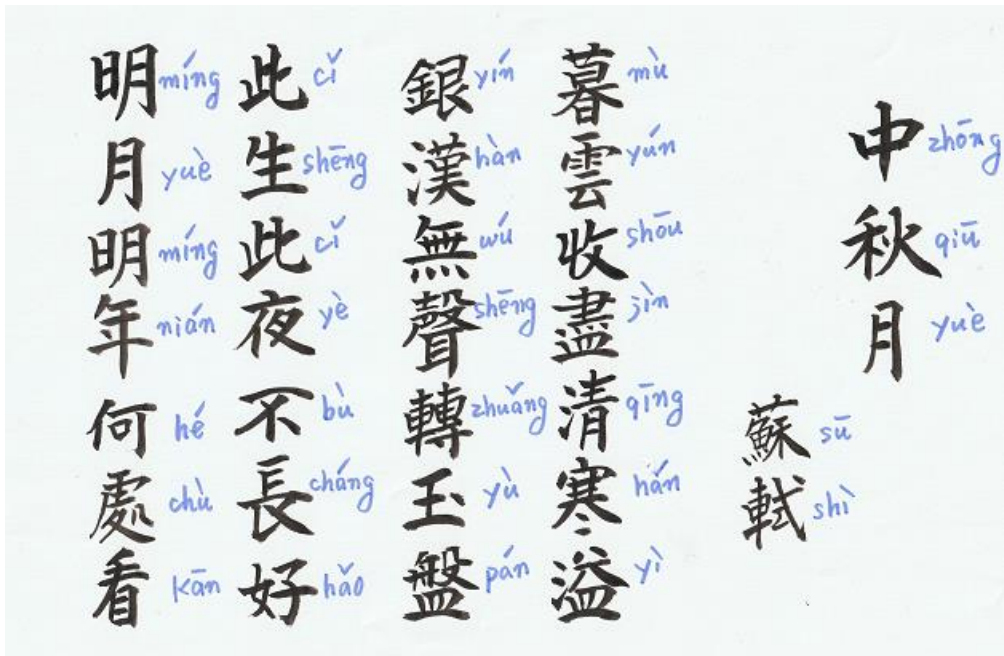 中 zhōng 秋 qiū 月 yuè
蘇 sū 軾 shì
暮 mù 雲 yún 收 shōu 盡 jìn 清 qīng 寒 hán 溢 yì
銀 yín 漢 hàn 無 wú 聲 shēng 轉 zhuǎng 玉 yù 盤 pán
此 cǐ 生 shēng 此 cǐ 夜 yè 不 bù 長 cháng 好 hǎo
明 míng 月 yuè 明 míng 年 nián 何 hé 處 chù 看 kān